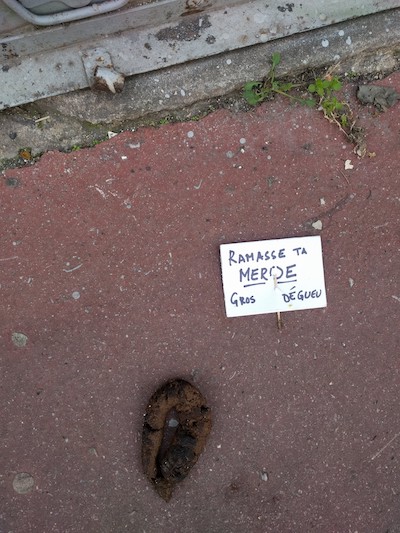 RAMASSE TA
MERDE
GROS DÉGUEU